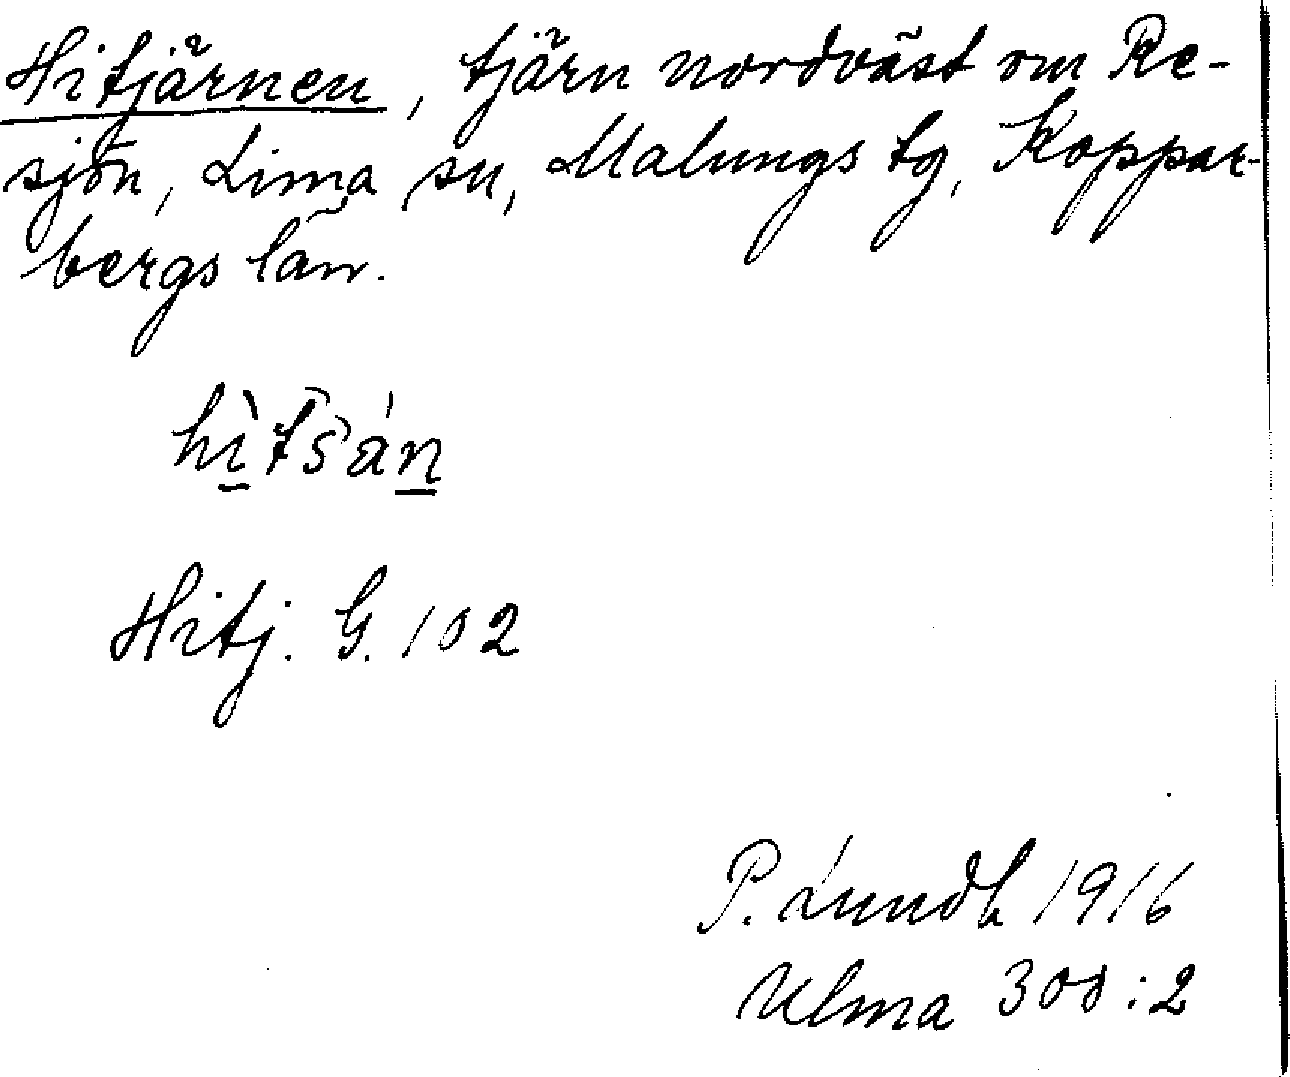 Hitjärnen, tjärn nordväst om Re-
sjön, Lima sn, Malungs tg, Koppar-
bergs län.
hìtšán
Hitj. G. 102
P. Lundh 1916
Ulma 300:2